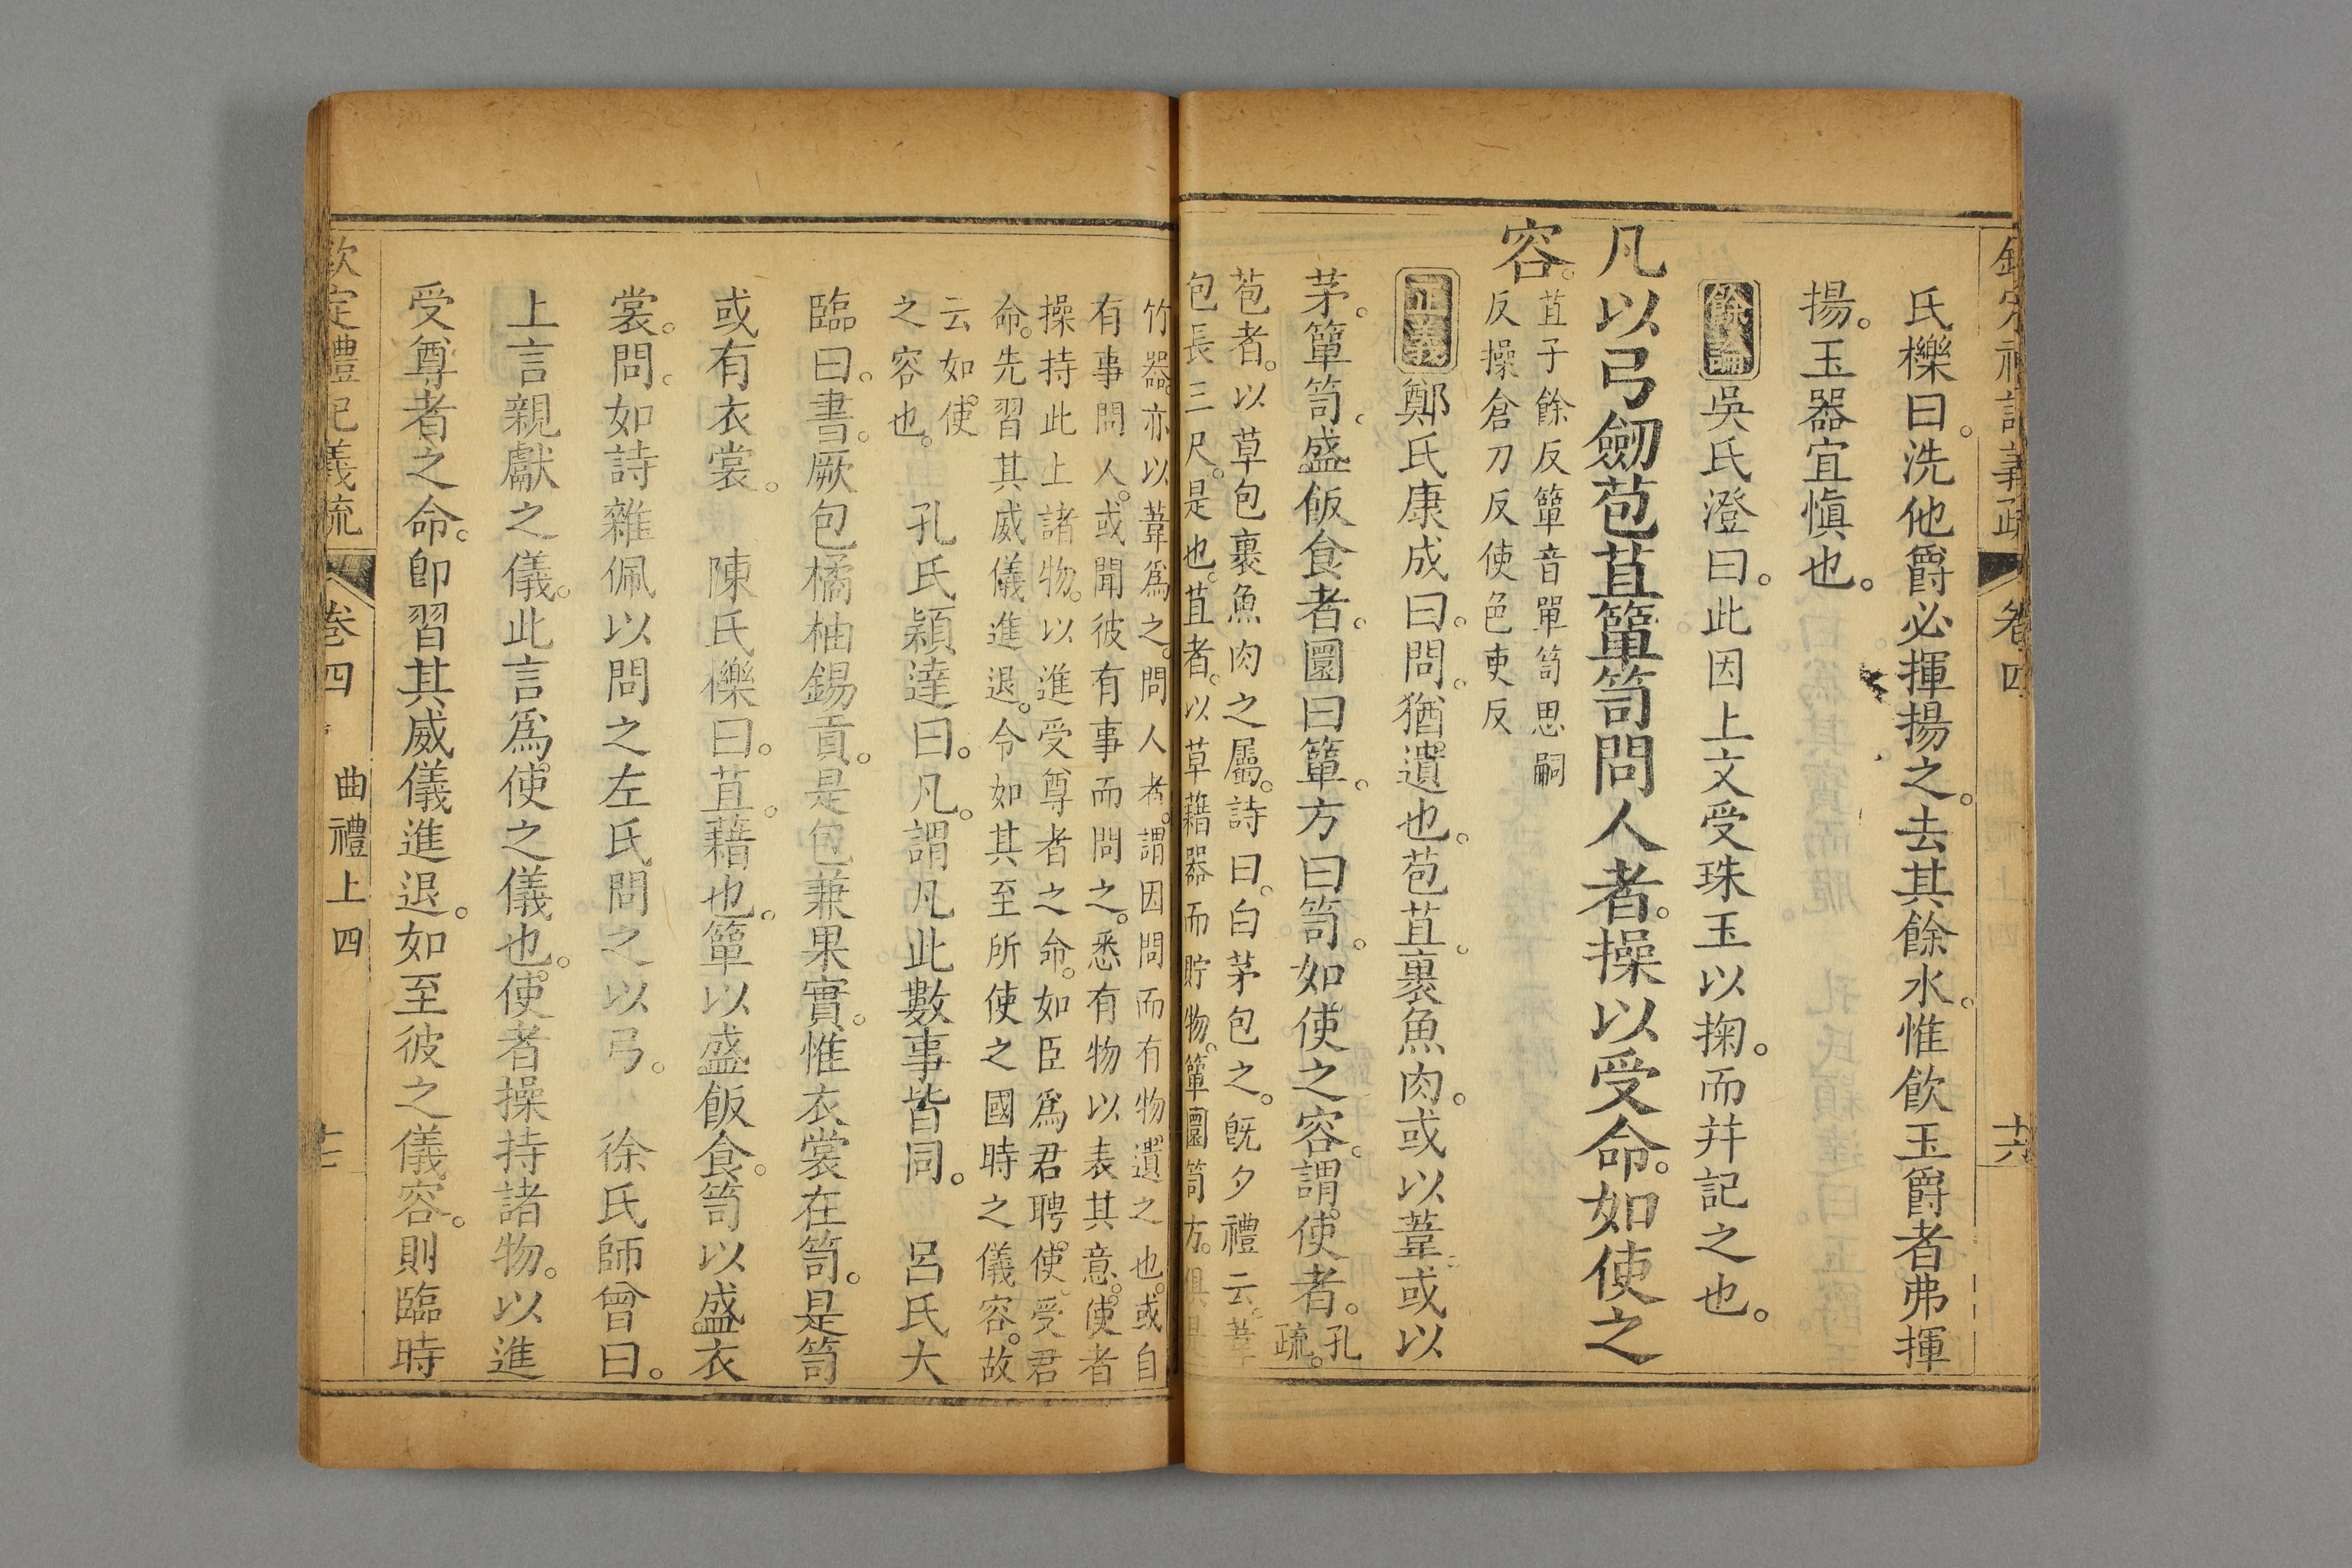 氏櫟曰。洗他爵必揮揚之。去其餘水。惟飲玉爵者弗揮
揚。玉器宜愼也。
餘論 吳氏澄曰。此因上文受珠玉以掬。而幷記之也。
凡以弓劒苞苴簞笥問人者。操以受命。如使之
容。
苴子餘反簞音單笥思嗣
反操倉刀反使色吏反
正義 鄭氏康成曰。問。猶遺也。苞苴。裹魚肉。或以葦。或以
茅。簞笥。盛飯食者。圜曰簞。方曰笥。如使之容。謂使者。
孔
疏。
苞者。以草包裹魚肉之屬。詩曰。白茅包之。旣夕禮云。葦
包長三尺。是也。苴者。以草藉器而貯物。簞圜笥方。俱是
竹器。亦以葦爲之。問人者。謂因問而有物遺之也。或自
有事問人。或聞彼有事而問之。悉有物以表其意。使者
操持此上諸物。以進受尊者之命。如臣爲君聘使。受君
命。先習其威儀進退。令如其至所使之國時之儀容。故
云如使
之容也。
孔氏穎達曰。凡。謂凡此數事皆同。 呂氏大
臨曰。書。厥包橘柚錫貢。是包兼果實。惟衣裳在笥。是笥
或有衣裳。 陳氏櫟曰。苴。藉也。簞以盛飯食。笥以盛衣
裳。問。如詩雜佩以問之左氏問之以弓。 徐氏師曾曰。
上言親獻之儀。此言爲使之儀也。使者操持諸物。以進
受尊者之命。卽習其威儀進退。如至彼之儀容。則臨時
欽定禮記義疏 卷四 曲禮上四 十七
欽定禮記義疏 卷四 十六